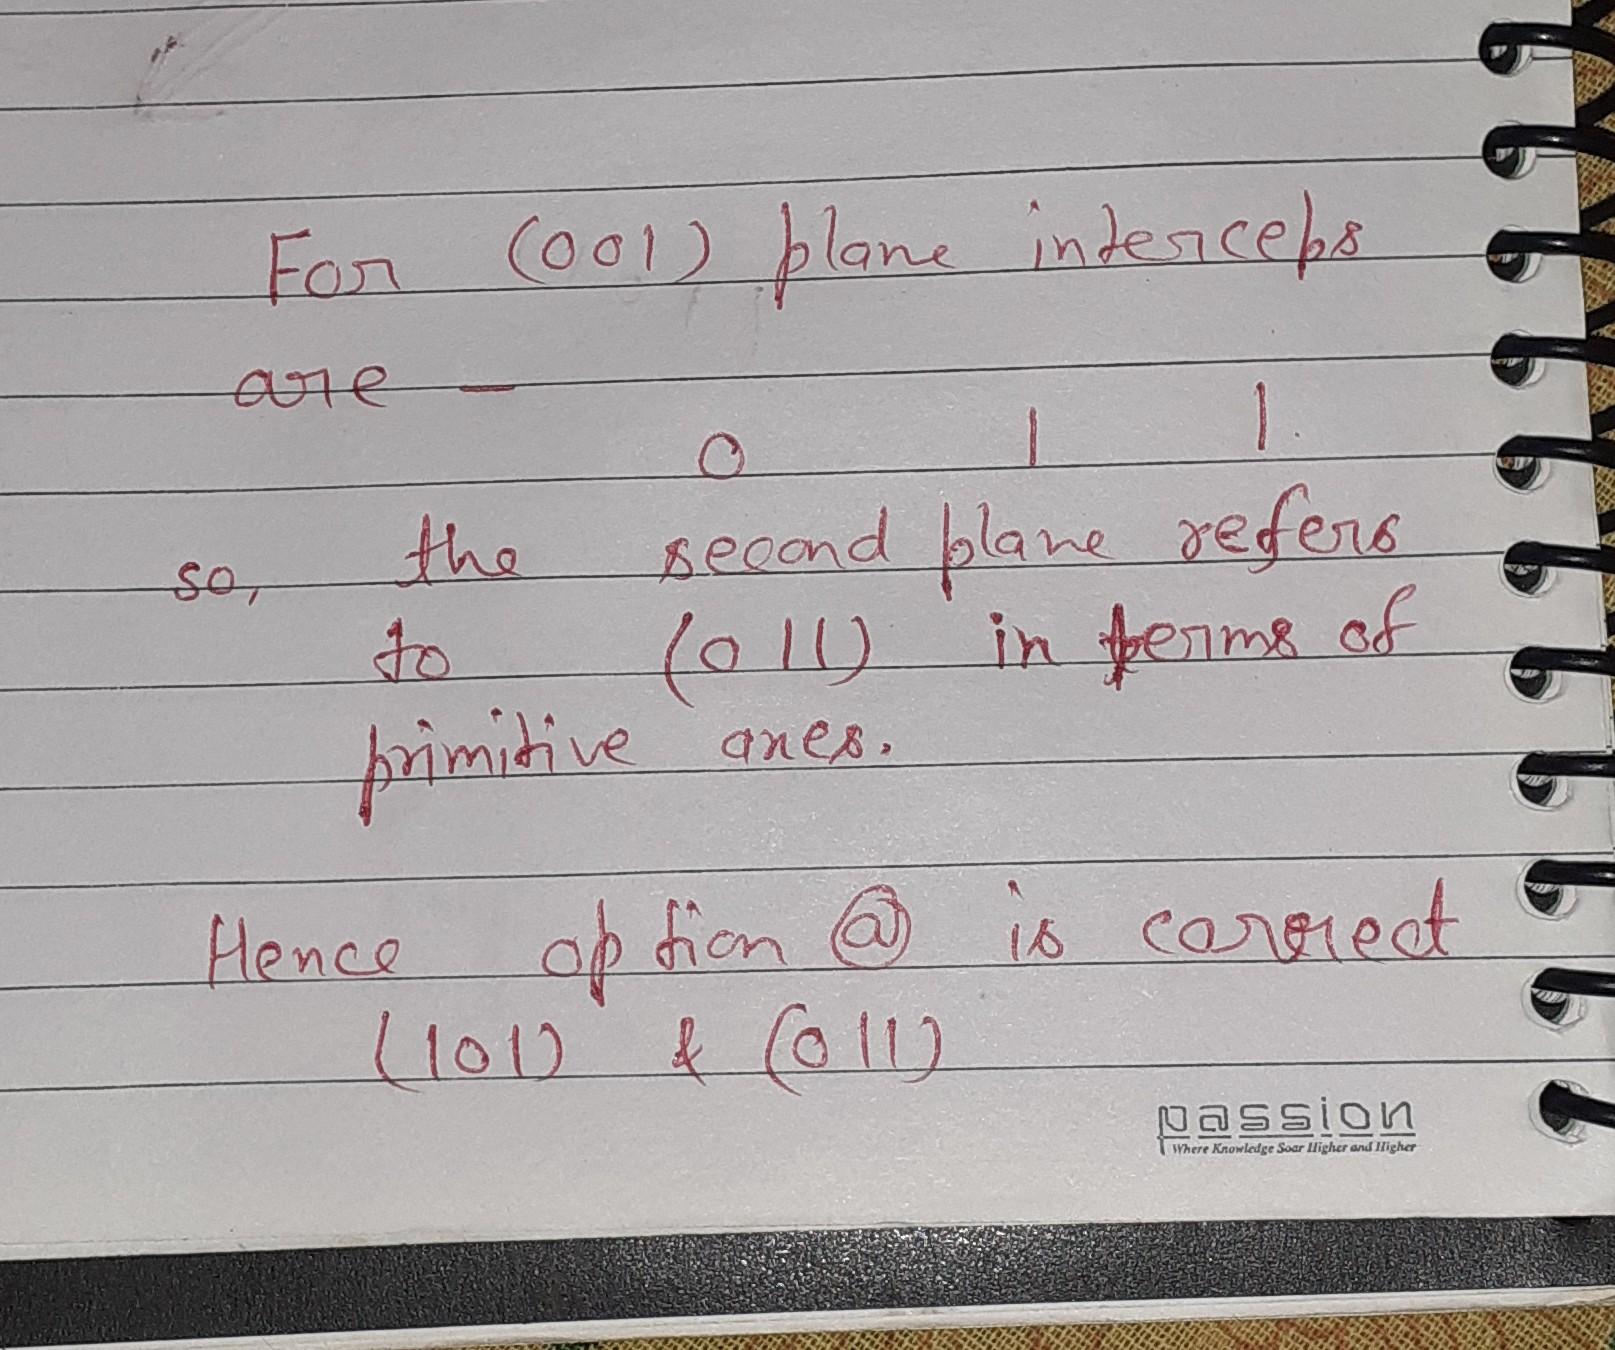 For (001) plane interceps
are -
0 1 1.
so, the second plane refers
to (011) in terms of
primitive axes.
Hence option @ is correct
(101) & (011)
passion
Where Knowledge Soar Higher and Higher